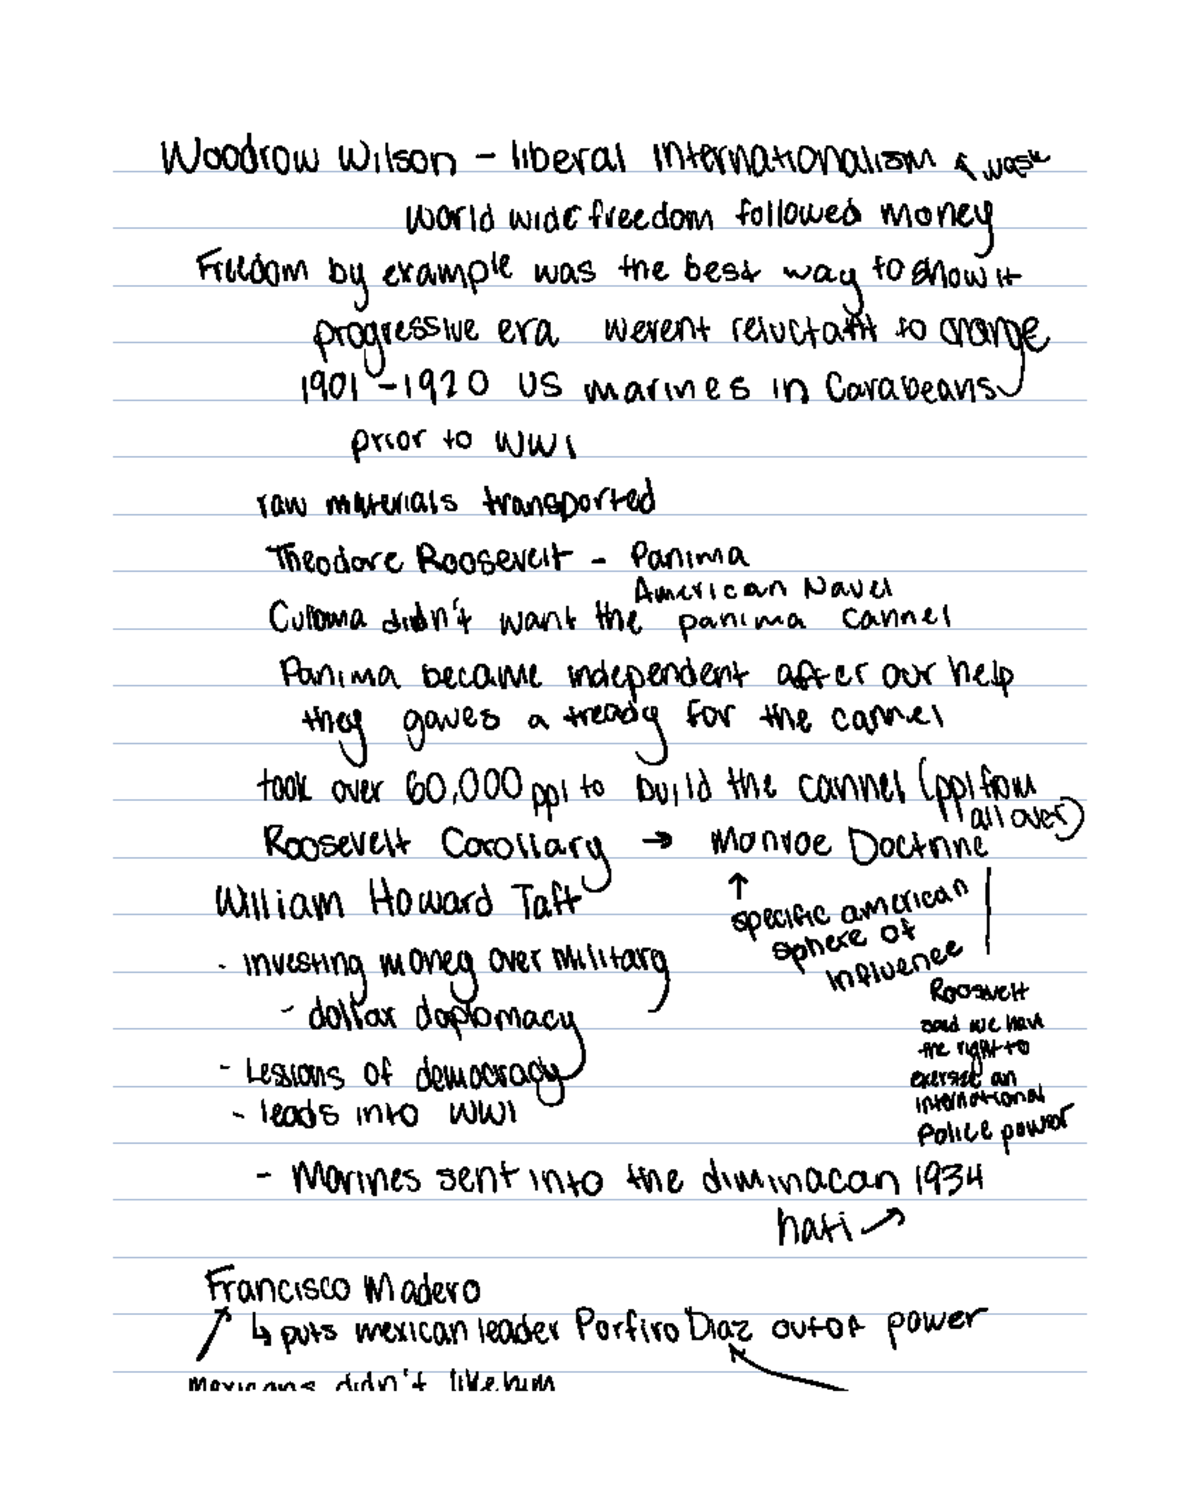 Woodrow Wilson - liberal internationalism
world wide freedom followed money
Freedom by example was the best way to show it
progressive era werent reluctant to change
1901-1920 US marines in Carabeans
prior to WW1
raw materials transported
Theodore Roosevelt - Panima
American Navel
didn't want the panima cannel
Panima became independent after our help
they gaves a tready for the cannel
took over 60,000 ppl to build the cannel (ppl from
all over)
Roosevelt Corollary → Monroe Doctrine
↑
William Howard Taft
specific american
sphere of
influence
- investing money over military
- dollar doplomacy
Roosevelt
said we have
the right to
exersise an
international
Police power
- Lessions of democracy
- leads into WW1
- Marines sent into the diminacan 1934
hati →
Francisco Madero
↳ puts mexican leader Porfiro Diaz out of power
mexicans didn't like him